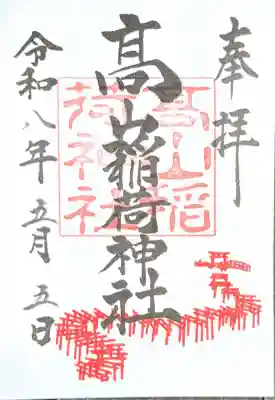 奉拝
髙山稲荷神社
髙山稲荷神社
令和八年五月五日